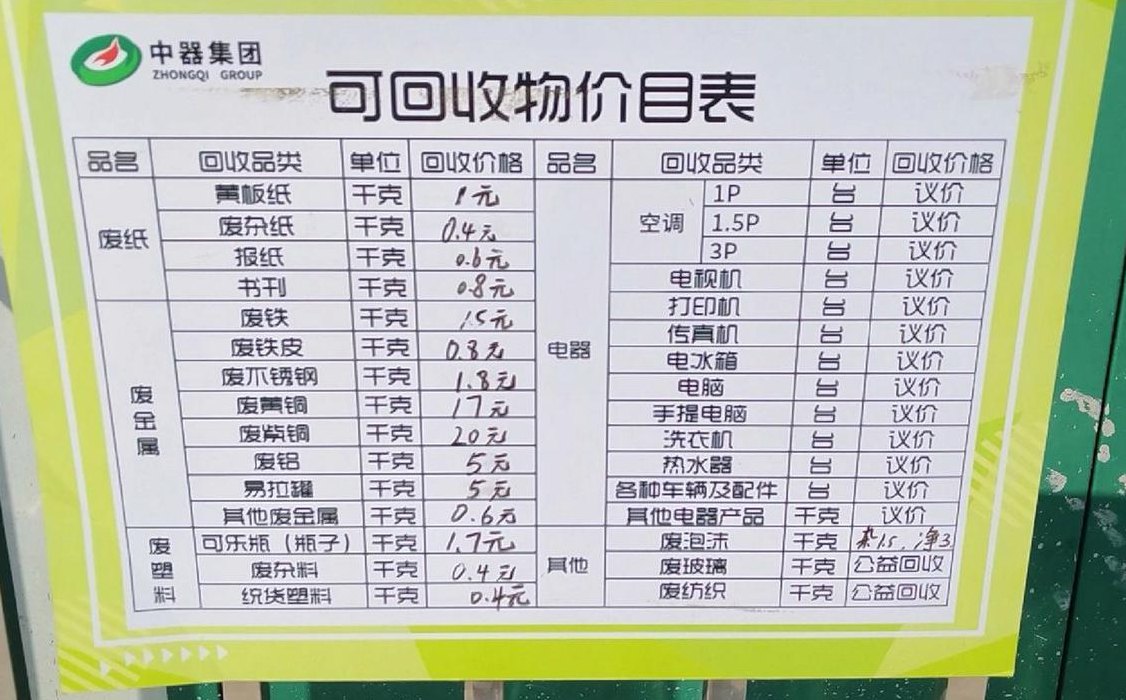 中器集团
ZHONGQI GROUP
可回收物价目表
品名 回收品类 单位 回收价格 品名 回收品类 单位 回收价格
废纸 黄板纸 千克 1元
废杂纸 千克 0.4元
报纸 千克 0.6元
书刊 千克 0.8元
废金属 废铁 千克 1.5元
废铁皮 千克 0.8元
废不锈钢 千克 1.8元
废黄铜 千克 17元
废紫铜 千克 20元
废铝 千克 5元
易拉罐 千克 5元
其他废金属 千克 0.6元
废塑料 可乐瓶（瓶子） 千克 1.7元
废杂料 千克 0.4元
统货塑料 千克 0.4元
电器 空调 1P 台 议价
1.5P 台 议价
3P 台 议价
电视机 台 议价
打印机 台 议价
传真机 台 议价
电冰箱 台 议价
电脑 台 议价
手提电脑 台 议价
洗衣机 台 议价
热水器 台 议价
各种车辆及配件 台 议价
其他电器产品 千克 议价
其他 废泡沫 千克 杂1.5，净3
废玻璃 千克 公益回收
废纺织 千克 公益回收